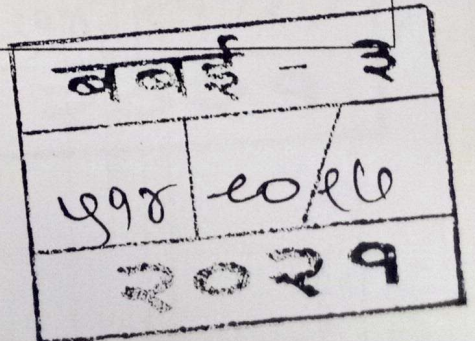 बबई - ३
५१४ १०/१६
२०२१